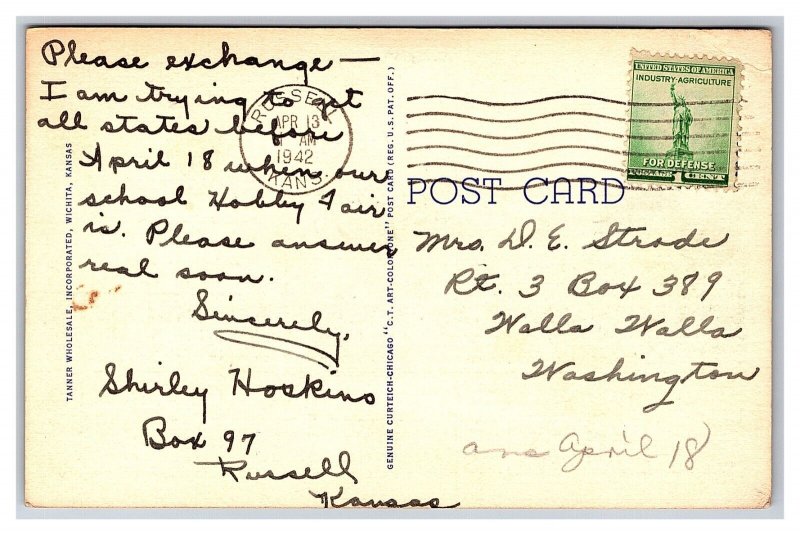 Please exchange —
I am trying to get
all states before
April 18 when our
school Hobby Fair
is. Please answer
real soon.
Sincerely,
Shirley Hoskins
Box 97
Russell
Kansas
RUSSELL
APR 13
AM
1942
KANS.
TANNER WHOLESALE, INCORPORATED, WICHITA, KANSAS
GENUINE CURTEICH-CHICAGO "C.T. ART-COLORTONE" POST CARD (REG. U.S. PAT. OFF.)
UNITED STATES OF AMERICA
INDUSTRY·AGRICULTURE
FOR DEFENSE
POSTAGE 1 CENT
POST CARD
Mrs. D. E. Strode
Rt. 3 Box 389
Walla Walla
Washington
ans April 18